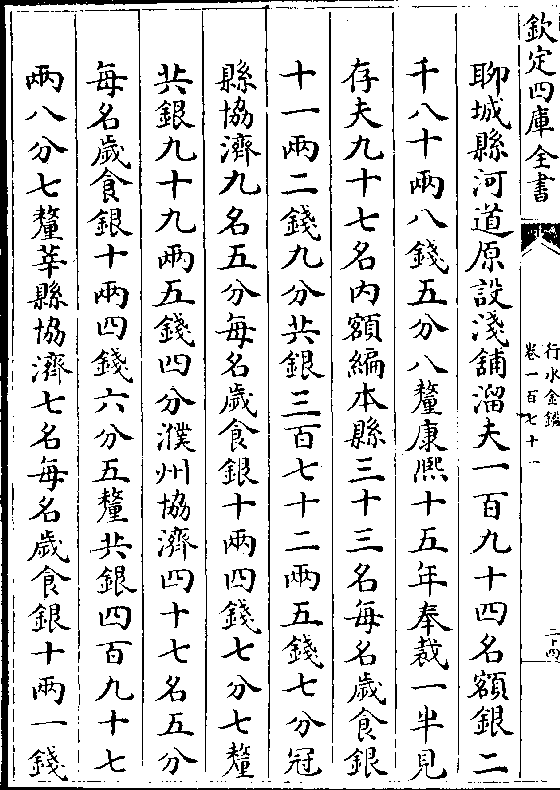 欽定四庫全書
行水金鑑
卷一百七十一
二十四
聊城縣河道原設淺舖溜夫一百九十四名額銀二
千八十兩八錢五分八釐康熙十五年奉裁一半見
存夫九十七名内額編本縣三十三名每名歲食銀
十一兩二錢九分共銀三百七十二兩五錢七分冠
縣協濟九名五分每名歲食銀十兩四錢七分七釐
共銀九十九兩五錢四分濮州協濟四十七名五分
每名歲食銀十兩四錢六分五釐共銀四百九十七
兩八分七釐莘縣協濟七名每名歲食銀十兩一錢